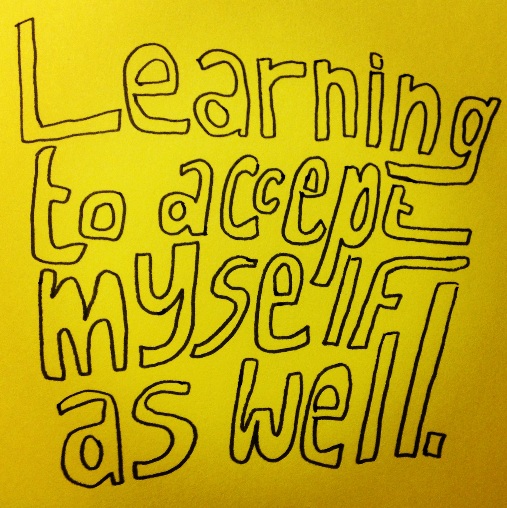 Learning
to accept
myself
as well.